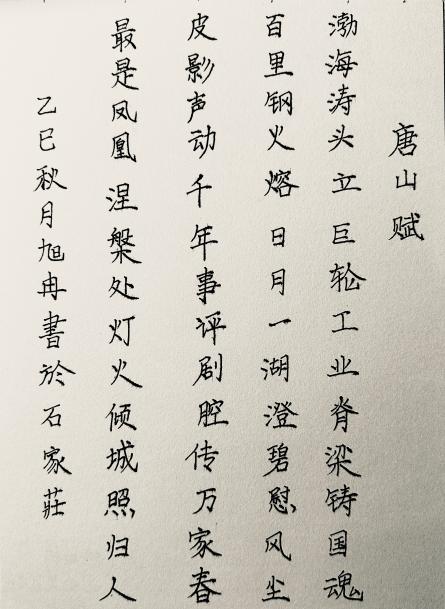 唐山赋
渤海涛头立巨轮工业脊梁铸国魂
百里钢火熔日月一湖澄碧慰风尘
皮影声动千年事评剧腔传万家春
最是凤凰涅槃处灯火倾城照归人
乙巳秋月旭冉書於石家莊